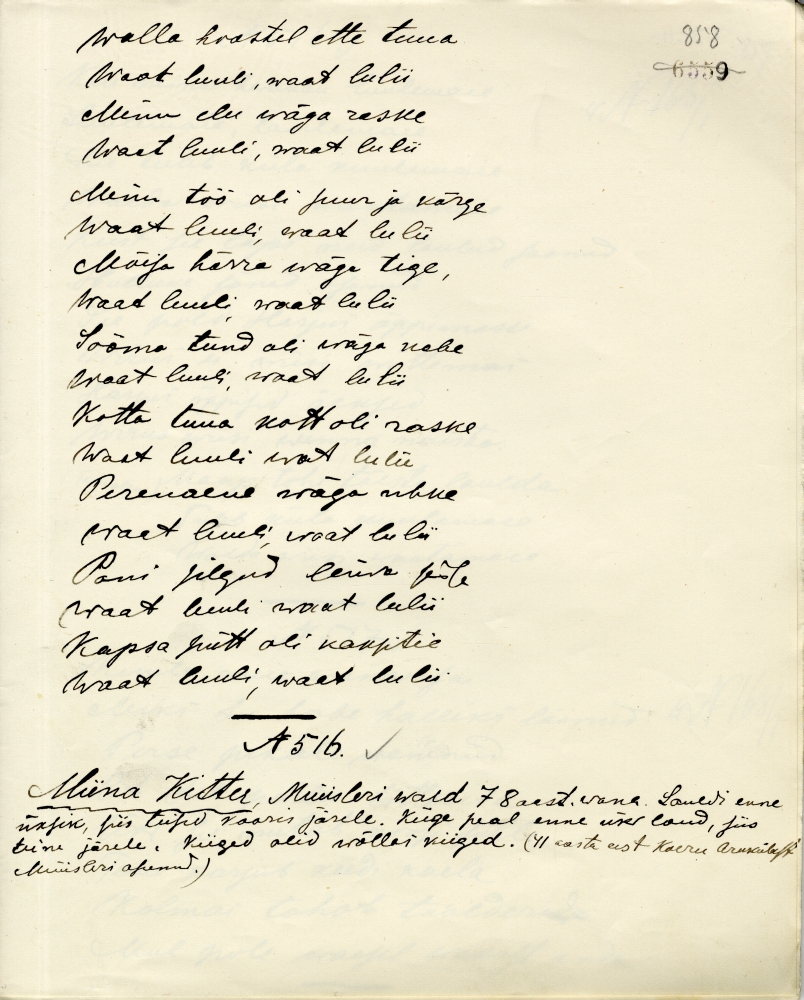 858
6559
Walla krastel ette tuua
Waat luuli, waat lulii
Minu elu wäga raske
Waat luuli, waat lulii
Minu töö oli suur ja kärge
Waat luuli, waat lulii
Mõisa härra wäga tige,
Waat luuli, waat lulii
Sööma tund oli wäga
waat luuli, waat lulii
Kotta tuua kott oli raske
Waat luuli wat lulii
Perenaene wäga uhke
waat luuli, waat lulii
Pani silgud leiwa pääle
waat luuli waat lulii
Kapsa pütt oli
Waat luuli, waat lulii
N 516.
Miina Kitter, Müüsleri wald 78 aast. wana. Lauldi enne
üksik, siis teised kooris järele. Kiige peal enne üks laud, siis
teine järele. Kiiged olid wõllas kiiged. (41 aasta eest Koeru Arukülast
Müüsleri asunud.)